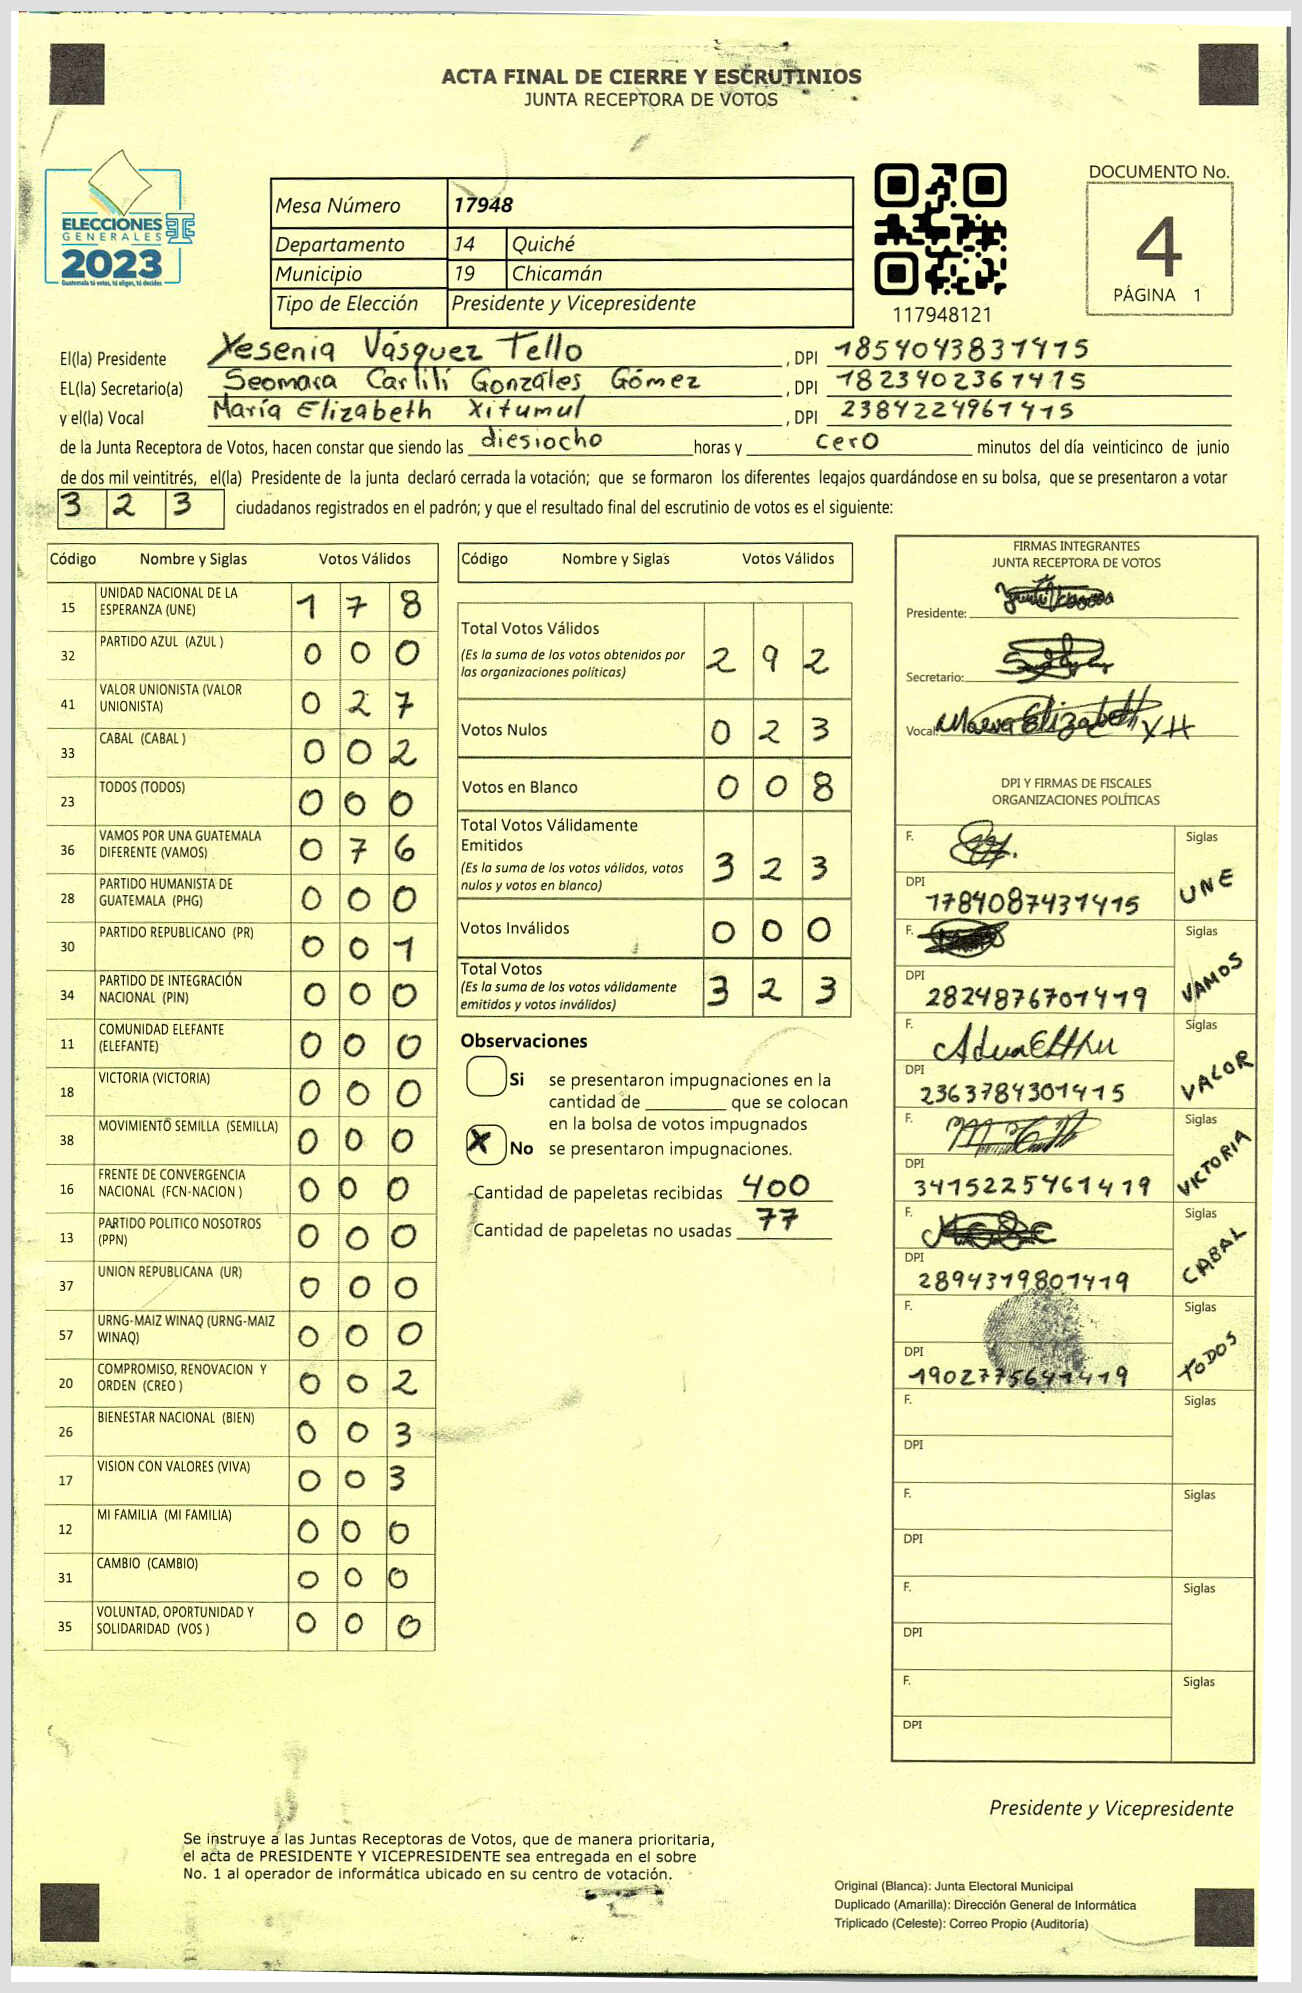 ACTA FINAL DE CIERRE Y ESCRUTINIOS
JUNTA RECEPTORA DE VOTOS
ELECCIONES
GENERALES
2023
Guatemala tú votas, tú eliges, tú decides
Mesa Número 17948
Departamento 14 Quiché
Municipio 19 Chicamán
Tipo de Elección Presidente y Vicepresidente
117948121
DOCUMENTO No.
4
PÁGINA 1
El(la) Presidente Yesenia Vásquez Tello, DPI 1854043831415
EL(la) Secretario(a) Seomara Carlili Gonzáles Gómez, DPI 1823402361415
y el(la) Vocal María Elizabeth Xitumul, DPI 2384224961415
de la Junta Receptora de Votos, hacen constar que siendo las diesiocho horas y cero minutos del día veinticinco de junio
de dos mil veintitrés, el(la) Presidente de la junta declaró cerrada la votación; que se formaron los diferentes legajos guardándose en su bolsa, que se presentaron a votar
3 2 3 ciudadanos registrados en el padrón; y que el resultado final del escrutinio de votos es el siguiente:
Código Nombre y Siglas Votos Válidos
15 UNIDAD NACIONAL DE LA ESPERANZA (UNE) 1 7 8
32 PARTIDO AZUL (AZUL ) 0 0 0
41 VALOR UNIONISTA (VALOR UNIONISTA) 0 2 7
33 CABAL (CABAL ) 0 0 2
23 TODOS (TODOS) 0 0 0
36 VAMOS POR UNA GUATEMALA DIFERENTE (VAMOS) 0 7 6
28 PARTIDO HUMANISTA DE GUATEMALA (PHG) 0 0 0
30 PARTIDO REPUBLICANO (PR) 0 0 1
34 PARTIDO DE INTEGRACIÓN NACIONAL (PIN) 0 0 0
11 COMUNIDAD ELEFANTE (ELEFANTE) 0 0 0
18 VICTORIA (VICTORIA) 0 0 0
38 MOVIMIENTO SEMILLA (SEMILLA) 0 0 0
16 FRENTE DE CONVERGENCIA NACIONAL (FCN-NACION ) 0 0 0
13 PARTIDO POLITICO NOSOTROS (PPN) 0 0 0
37 UNION REPUBLICANA (UR) 0 0 0
57 URNG-MAIZ WINAQ (URNG-MAIZ WINAQ) 0 0 0
20 COMPROMISO, RENOVACION Y ORDEN (CREO ) 0 0 2
26 BIENESTAR NACIONAL (BIEN) 0 0 3
17 VISION CON VALORES (VIVA) 0 0 3
12 MI FAMILIA (MI FAMILIA) 0 0 0
31 CAMBIO (CAMBIO) 0 0 0
35 VOLUNTAD, OPORTUNIDAD Y SOLIDARIDAD (VOS ) 0 0 0
Código Nombre y Siglas Votos Válidos
Total Votos Válidos
(Es la suma de los votos obtenidos por las organizaciones políticas) 2 9 2
Votos Nulos 0 2 3
Votos en Blanco 0 0 8
Total Votos Válidamente Emitidos
(Es la suma de los votos válidos, votos nulos y votos en blanco) 3 2 3
Votos Inválidos 0 0 0
Total Votos
(Es la suma de los votos válidamente emitidos y votos inválidos) 3 2 3
Observaciones
Si se presentaron impugnaciones en la
cantidad de ________ que se colocan
en la bolsa de votos impugnados
X No se presentaron impugnaciones.
Cantidad de papeletas recibidas 400
Cantidad de papeletas no usadas 77
FIRMAS INTEGRANTES
JUNTA RECEPTORA DE VOTOS
Presidente:
Secretario:
Vocal:
DPI Y FIRMAS DE FISCALES
ORGANIZACIONES POLÍTICAS
F. Siglas UNE
DPI 1784087431415
F. Siglas VAMOS
DPI 2824876701419
F. Siglas VALOR
DPI 2363784301415
F. Siglas VICTORIA
DPI 3415225461419
F. Siglas CABAL
DPI 2894319801419
F. Siglas TODOS
DPI 1902775641419
F. Siglas
DPI
F. Siglas
DPI
F. Siglas
DPI
F. Siglas
DPI
Presidente y Vicepresidente
Se instruye a las Juntas Receptoras de Votos, que de manera prioritaria,
el acta de PRESIDENTE Y VICEPRESIDENTE sea entregada en el sobre
No. 1 al operador de informática ubicado en su centro de votación.
Original (Blanca): Junta Electoral Municipal
Duplicado (Amarilla): Dirección General de Informática
Triplicado (Celeste): Correo Propio (Auditoría)